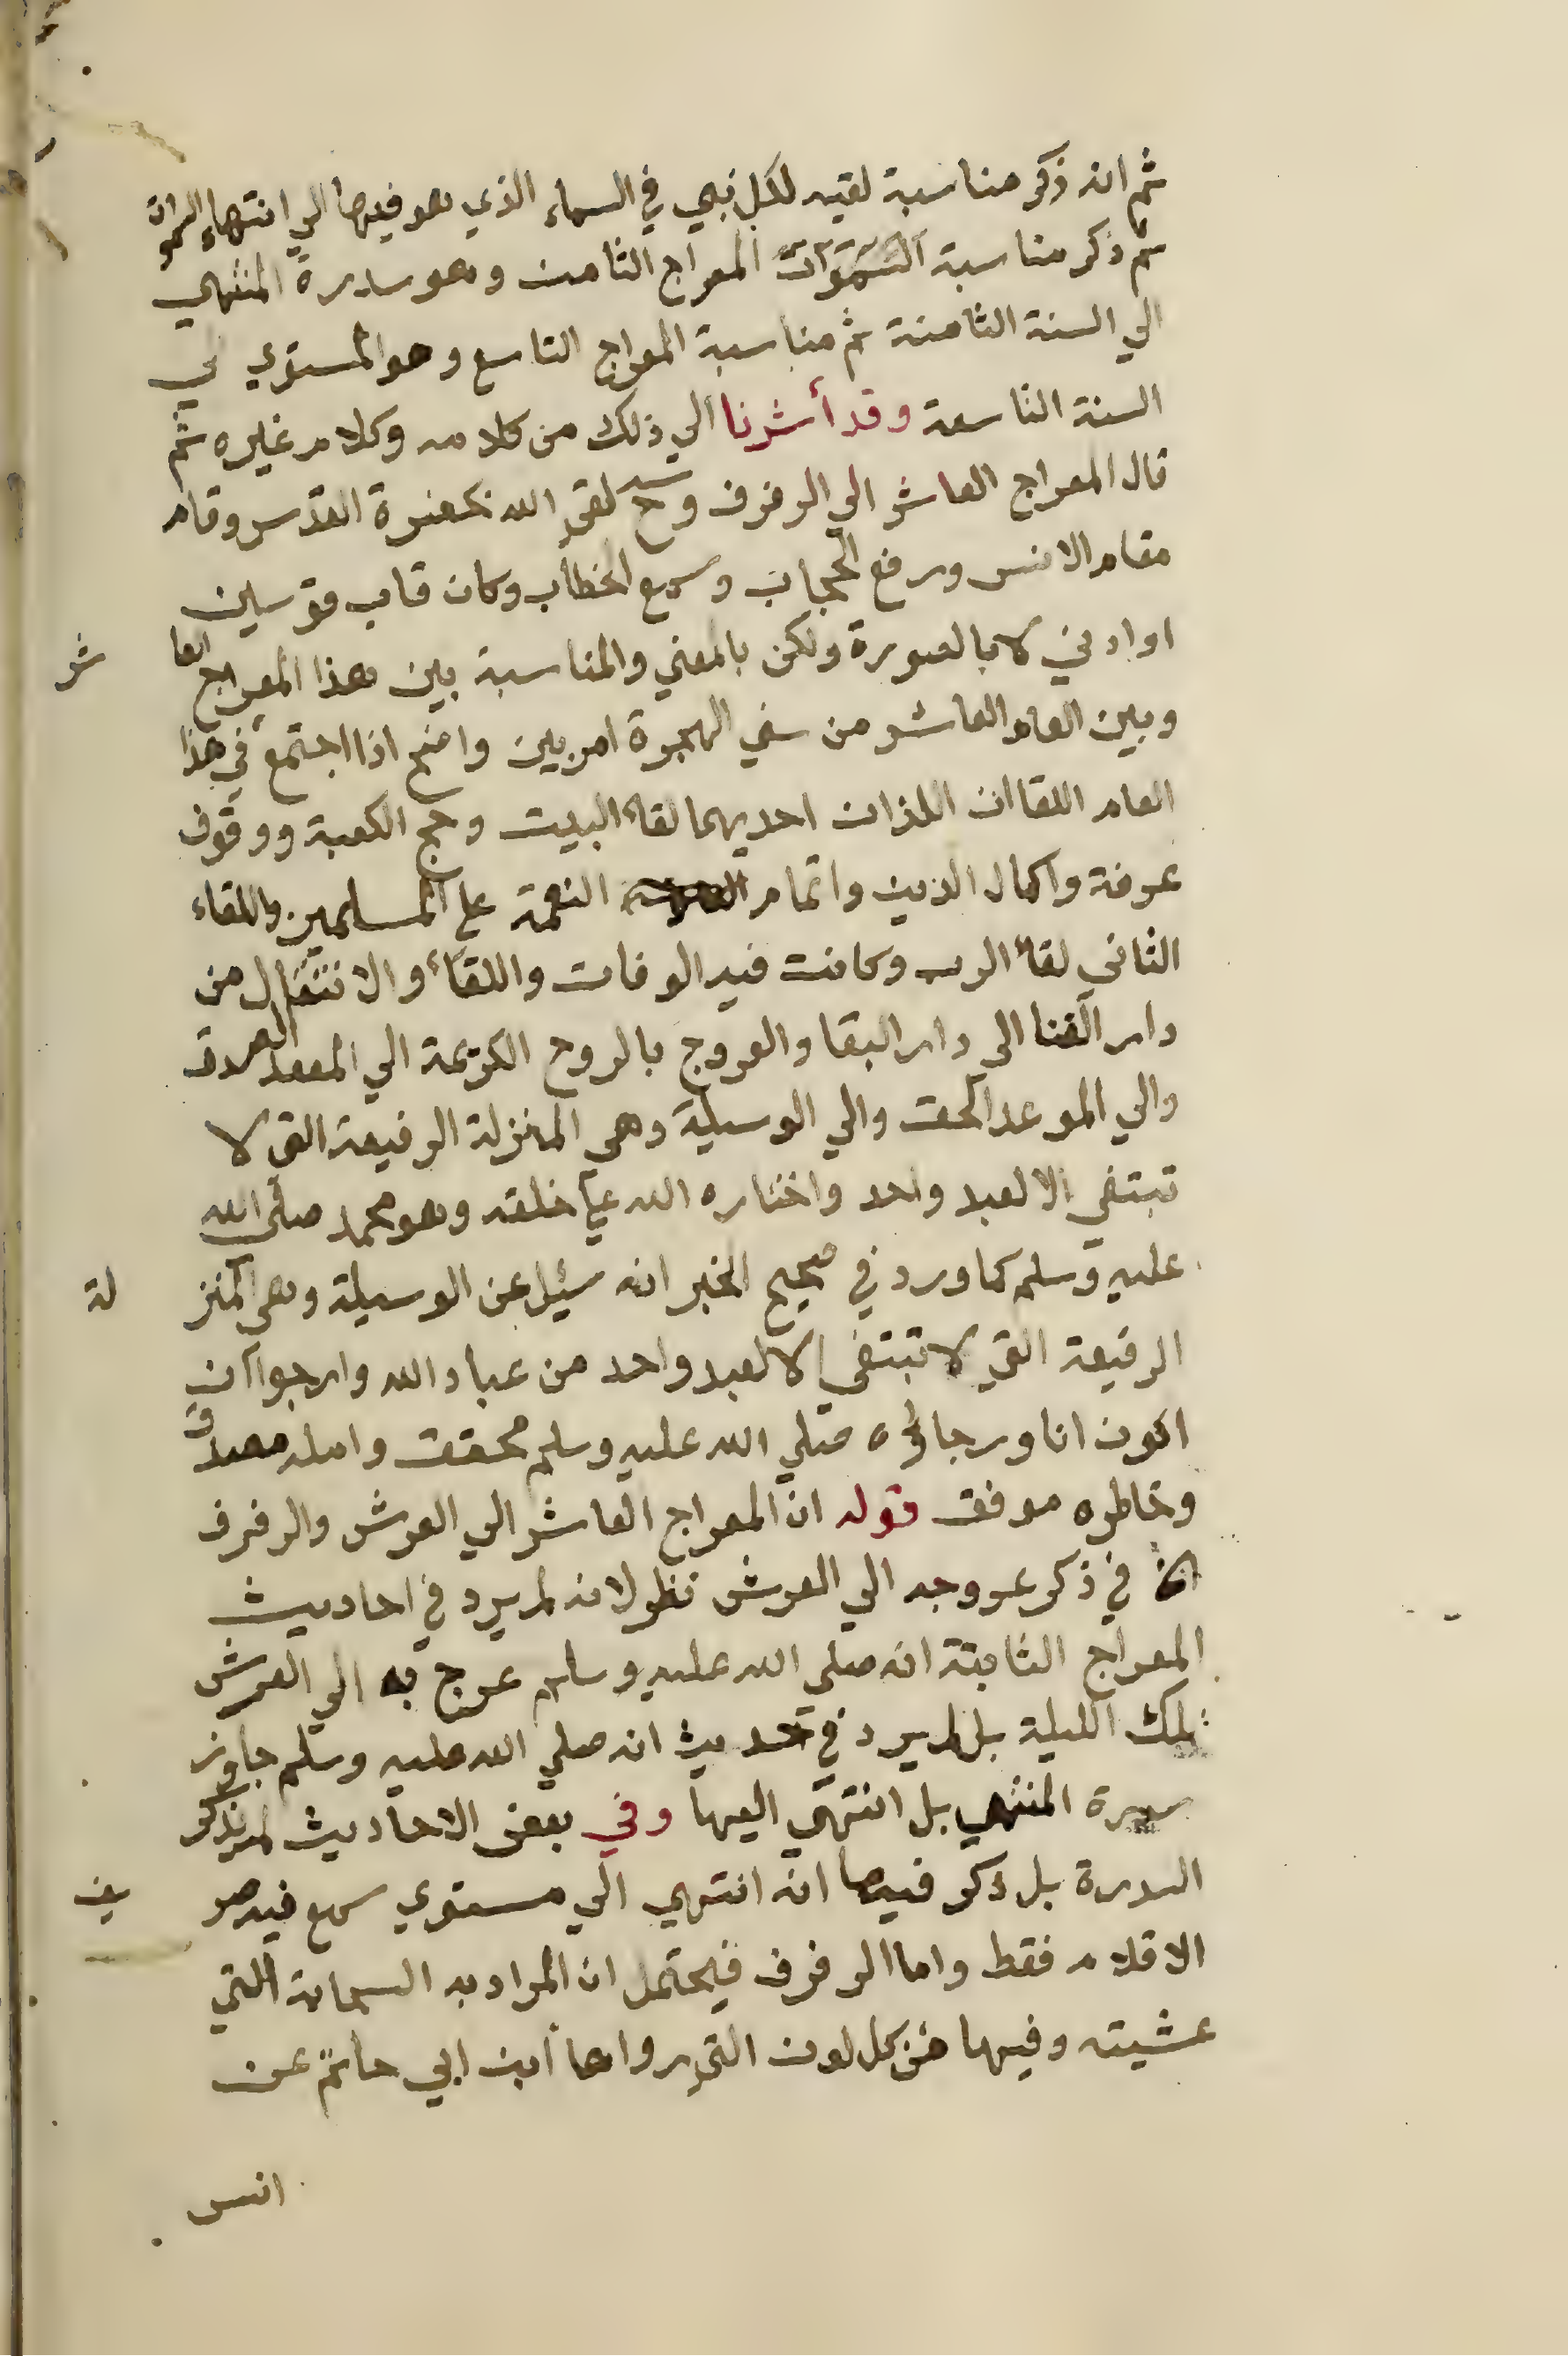 ثم انه ذكر مناسبة لقيه لكل نبي في السماء الذي هو فيها الي انتهاء السموات
ثم ذكر مناسبة السموات المعراج الثامن وهو سدرة المنتهي
الي السنة الثامنة ثم مناسبة المعراج التاسع وهو المستوي الي
السنة التاسعة وقد أشرنا الي ذلك من كلامه وكلام غيره ثم
قال المعراج العاشر الي الرفرف وح لقي الله بحضرة القدس وقام
مقام الانس ورفع الحجاب وسمع الخطاب وكان قاب قوسين
او ادني لا بالصورة ولكن بالمعني والمناسبة بين هذا المعراج العا شر
وبين العام العاشر من سني الهجرة امر بين واضح اذا اجتمع في هذا
العام اللقاان اللذان احديهما لقاء البيت وحج الكعبة ووقوف
عرفة واكمال الدين واتمام النعمة علي المسلمين واللقاء
الثاني لقاء الرب وكانت فيه الوفات واللقاء والانتقال من
دار الفنا الي دار البقا والعروج بالروح الكريمة الي المقعد الصدق
والي الموعد الحق والي الوسيلة وهي المنزلة الرفيعة التي لا
تبتغي الا لعبد واحد واختاره الله علي خلقه وهو محمد صلي الله
عليه وسلم كما ورد في صحيح الخبر انه سئيل عن الوسيلة وهي المنز لة
الرفيعة التي لا تبتغي الا لعبد واحد من عباد الله وارجوا ان
اكون انا ورجاؤه صلي الله عليه وسلم محقق وامله مصدق
وخاطره موفق قوله ان المعراج العاشر الي العرش والرفرف
في ذكر عروجه الي العرش نظر لانه لم يرد في احاديث
المعراج الثابتة انه صلي الله عليه وسلم عرج به الي العرش
تلك الليلة بل لم يرد في حديث انه صلي الله عليه وسلم جاوز
سدرة المنتهي بل انتهي اليها وفي بعض الاحاديث لم يذكر
السدرة بل ذكر فيها انه انتهي الي مستوي سمع فيه صر يف
الاقلام فقط واما الرفرف فيحتمل ان المراد به السحابة التي
غشيته وفيها من كل لون التي رواها ابن ابي حاتم عن
انس